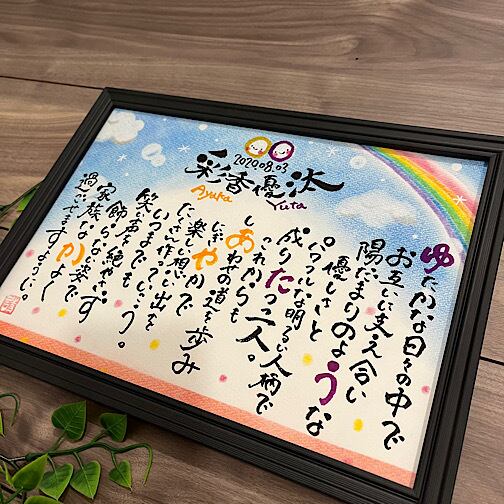 2020.08.03
彩香 優汰
Ayaka
Yuta
ゆたかな日々の中で
お互いに支え合い
陽だまりのような
優しさと
パワフルな明るい人柄で
成りたつ二人。
これからも
しあわせの道を歩み
にぎやかで
楽しい想い出を
たくさん作って
いつまでも
笑い声をたやさず
飾らない姿で
家族なかよく
過ごせますように。